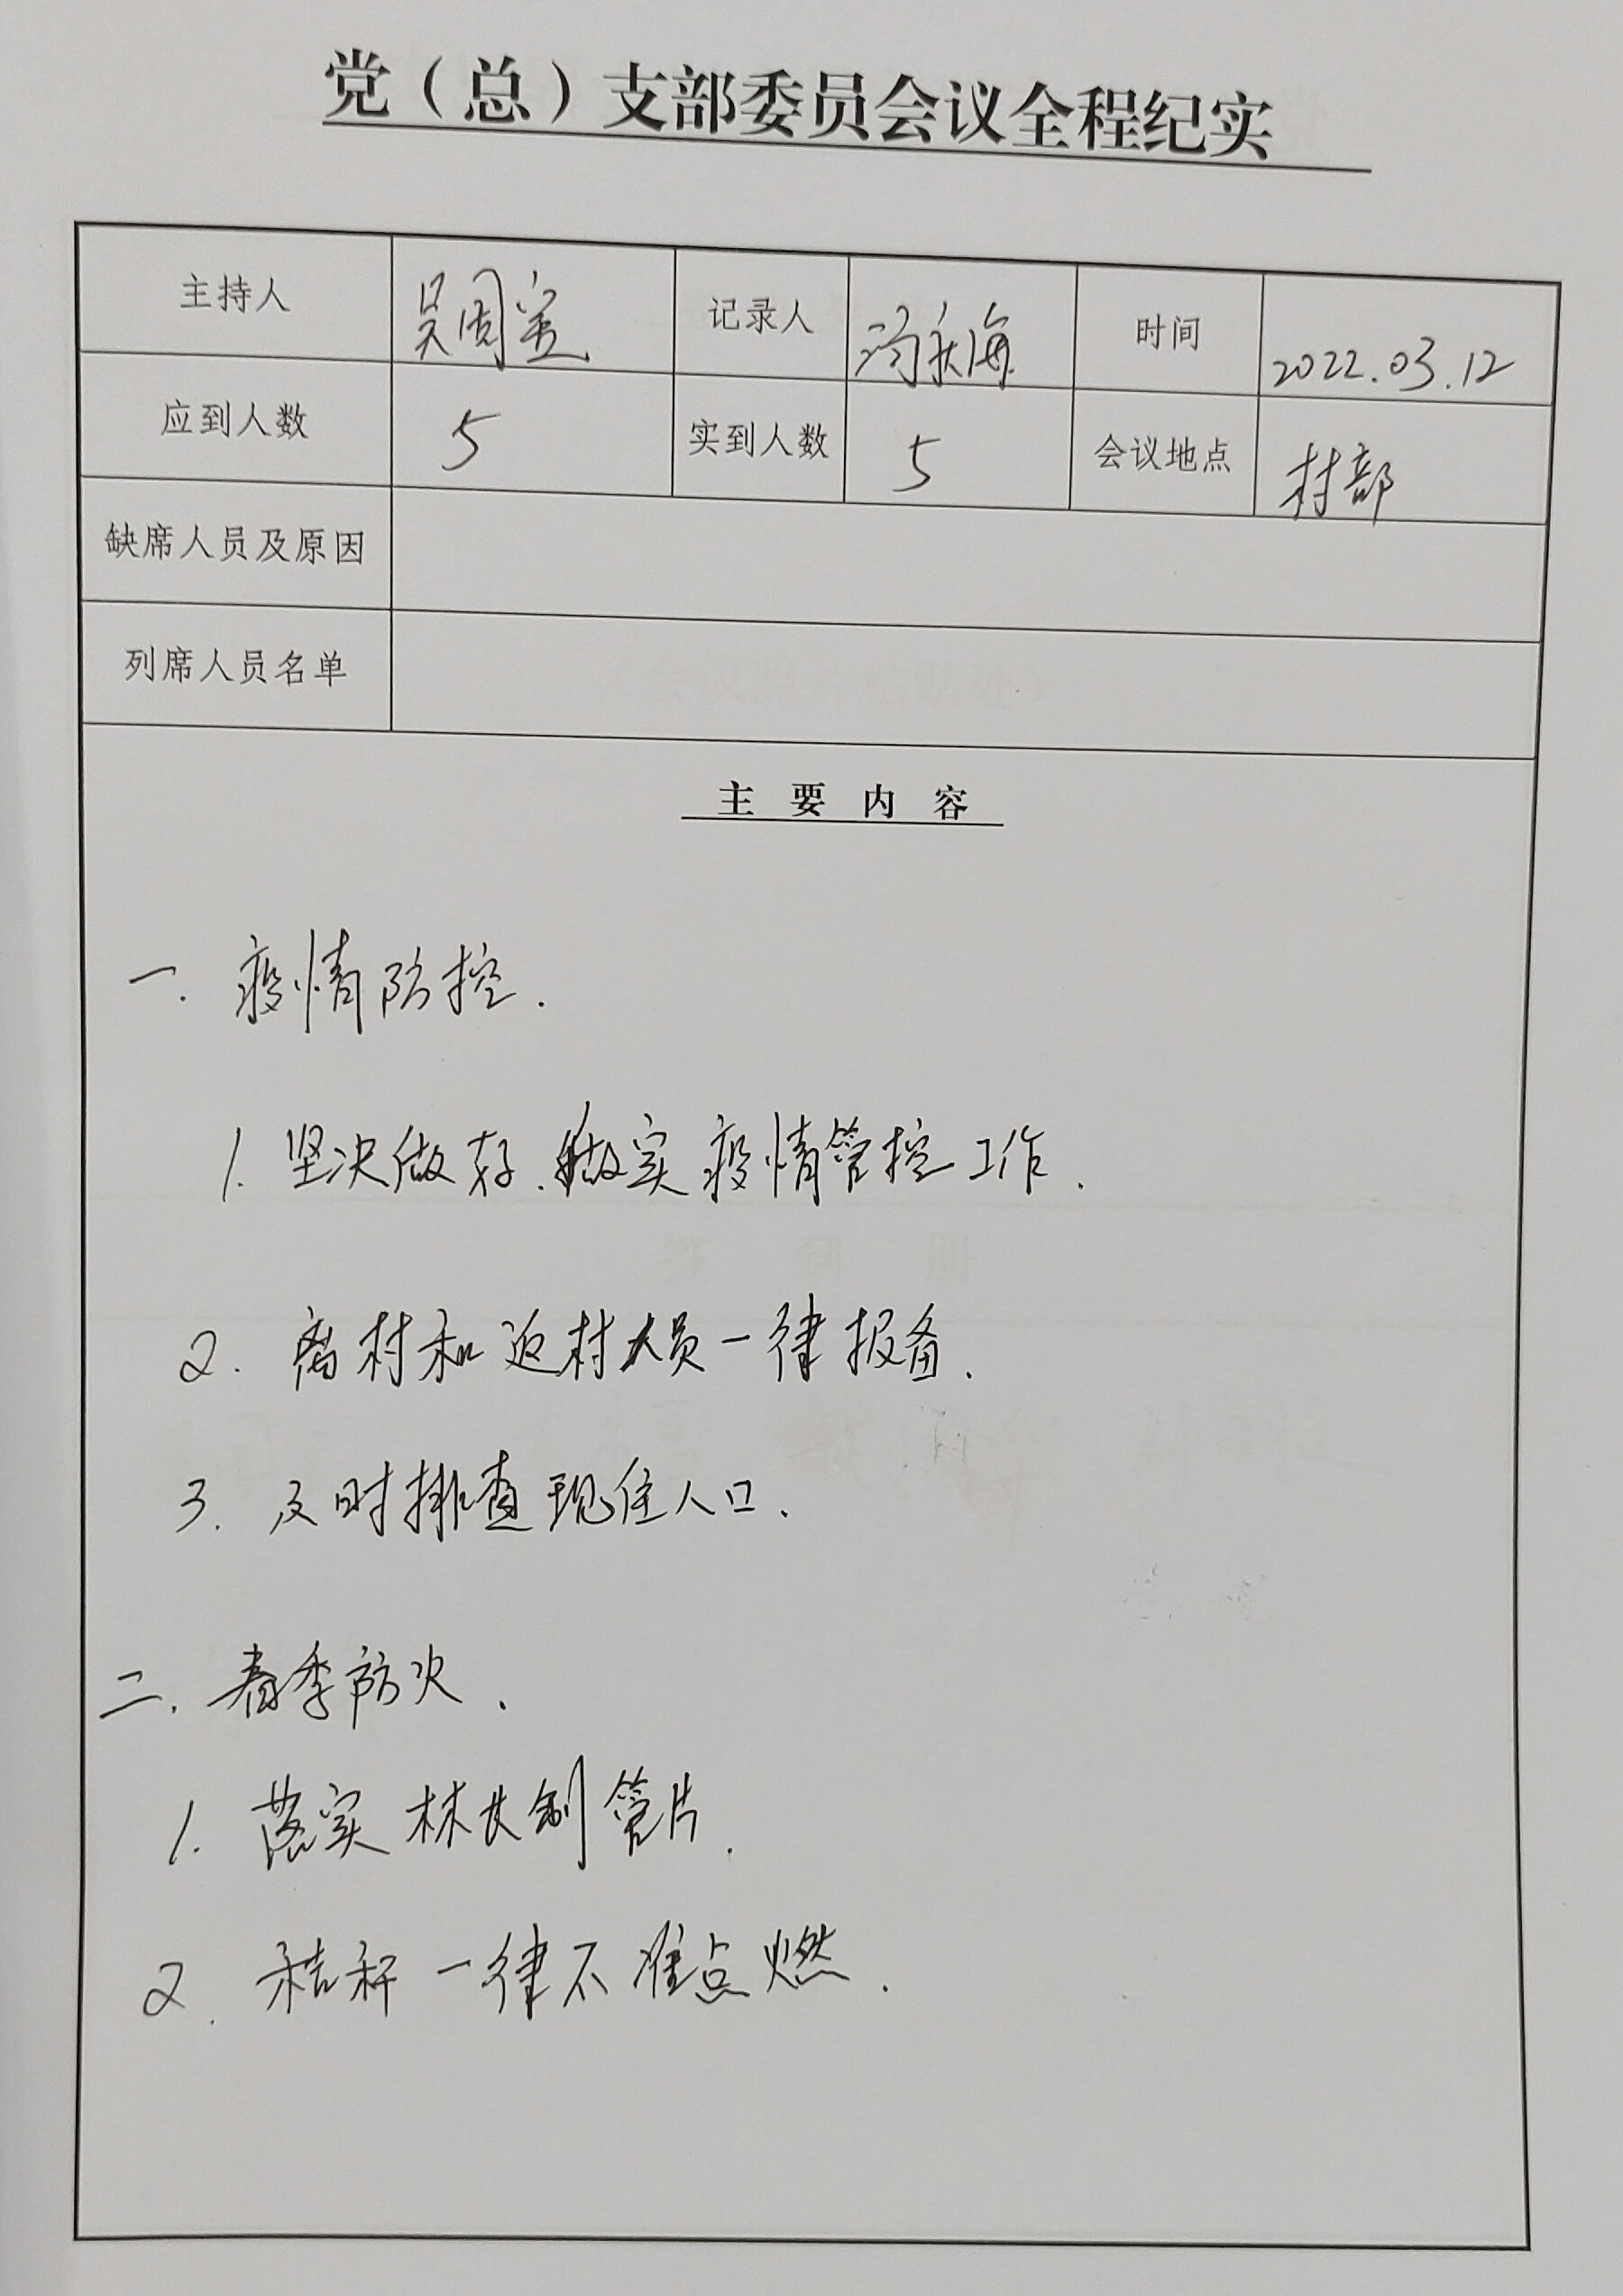 党（总）支部委员会议全程纪实
主持人 吴国 记录人 海 时间 2022.03.12
应到人数 5 实到人数 5 会议地点 村部
缺席人员及原因
列席人员名单
主要内容
一. 疫情防控.
1. 坚决做好.做实疫情管控工作.
2. 离村和返村人员一律报备.
3. 及时排查现住人口.
二. 春季防火.
1. 落实林长制管片.
2. 秸秆一律不准点燃.